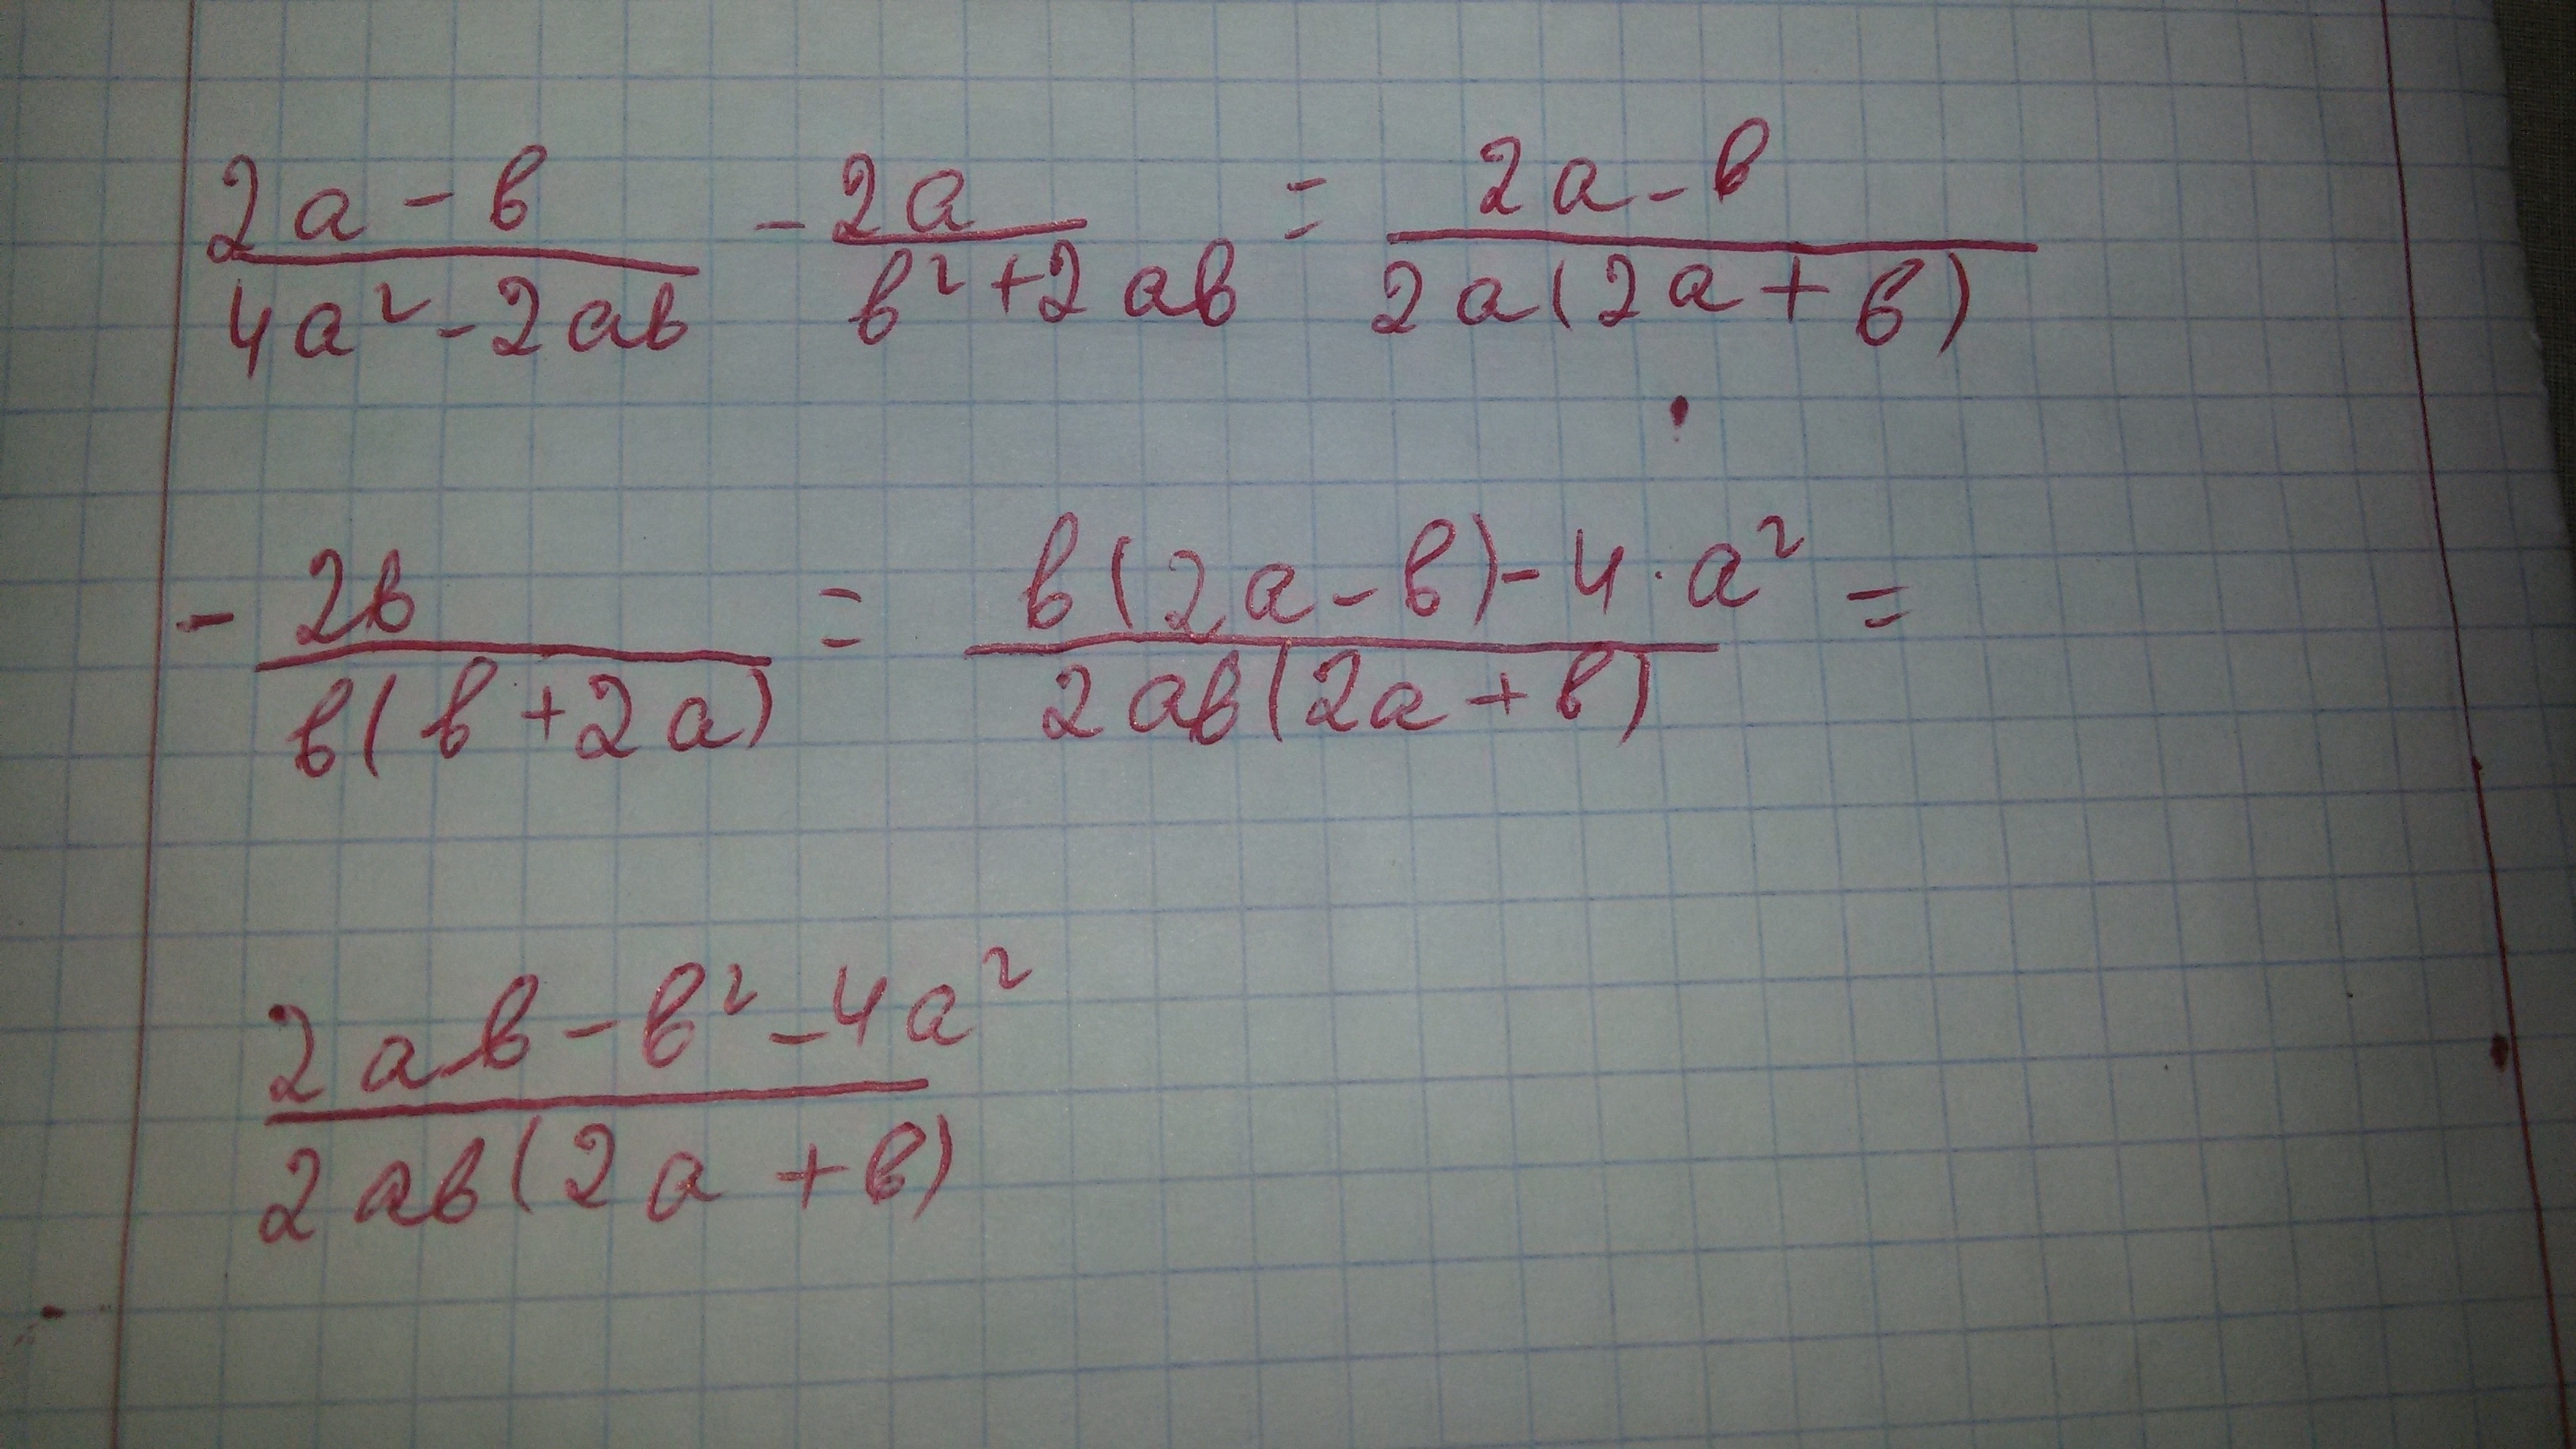 (2a - b)/(4a² - 2ab) - 2a/(b² + 2ab) = (2a - b)/(2a(2a + b))
- 2b/(b(b + 2a)) = (b(2a - b) - 4 · a²)/(2ab(2a + b)) =
(2ab - b² - 4a²)/(2ab(2a + b))